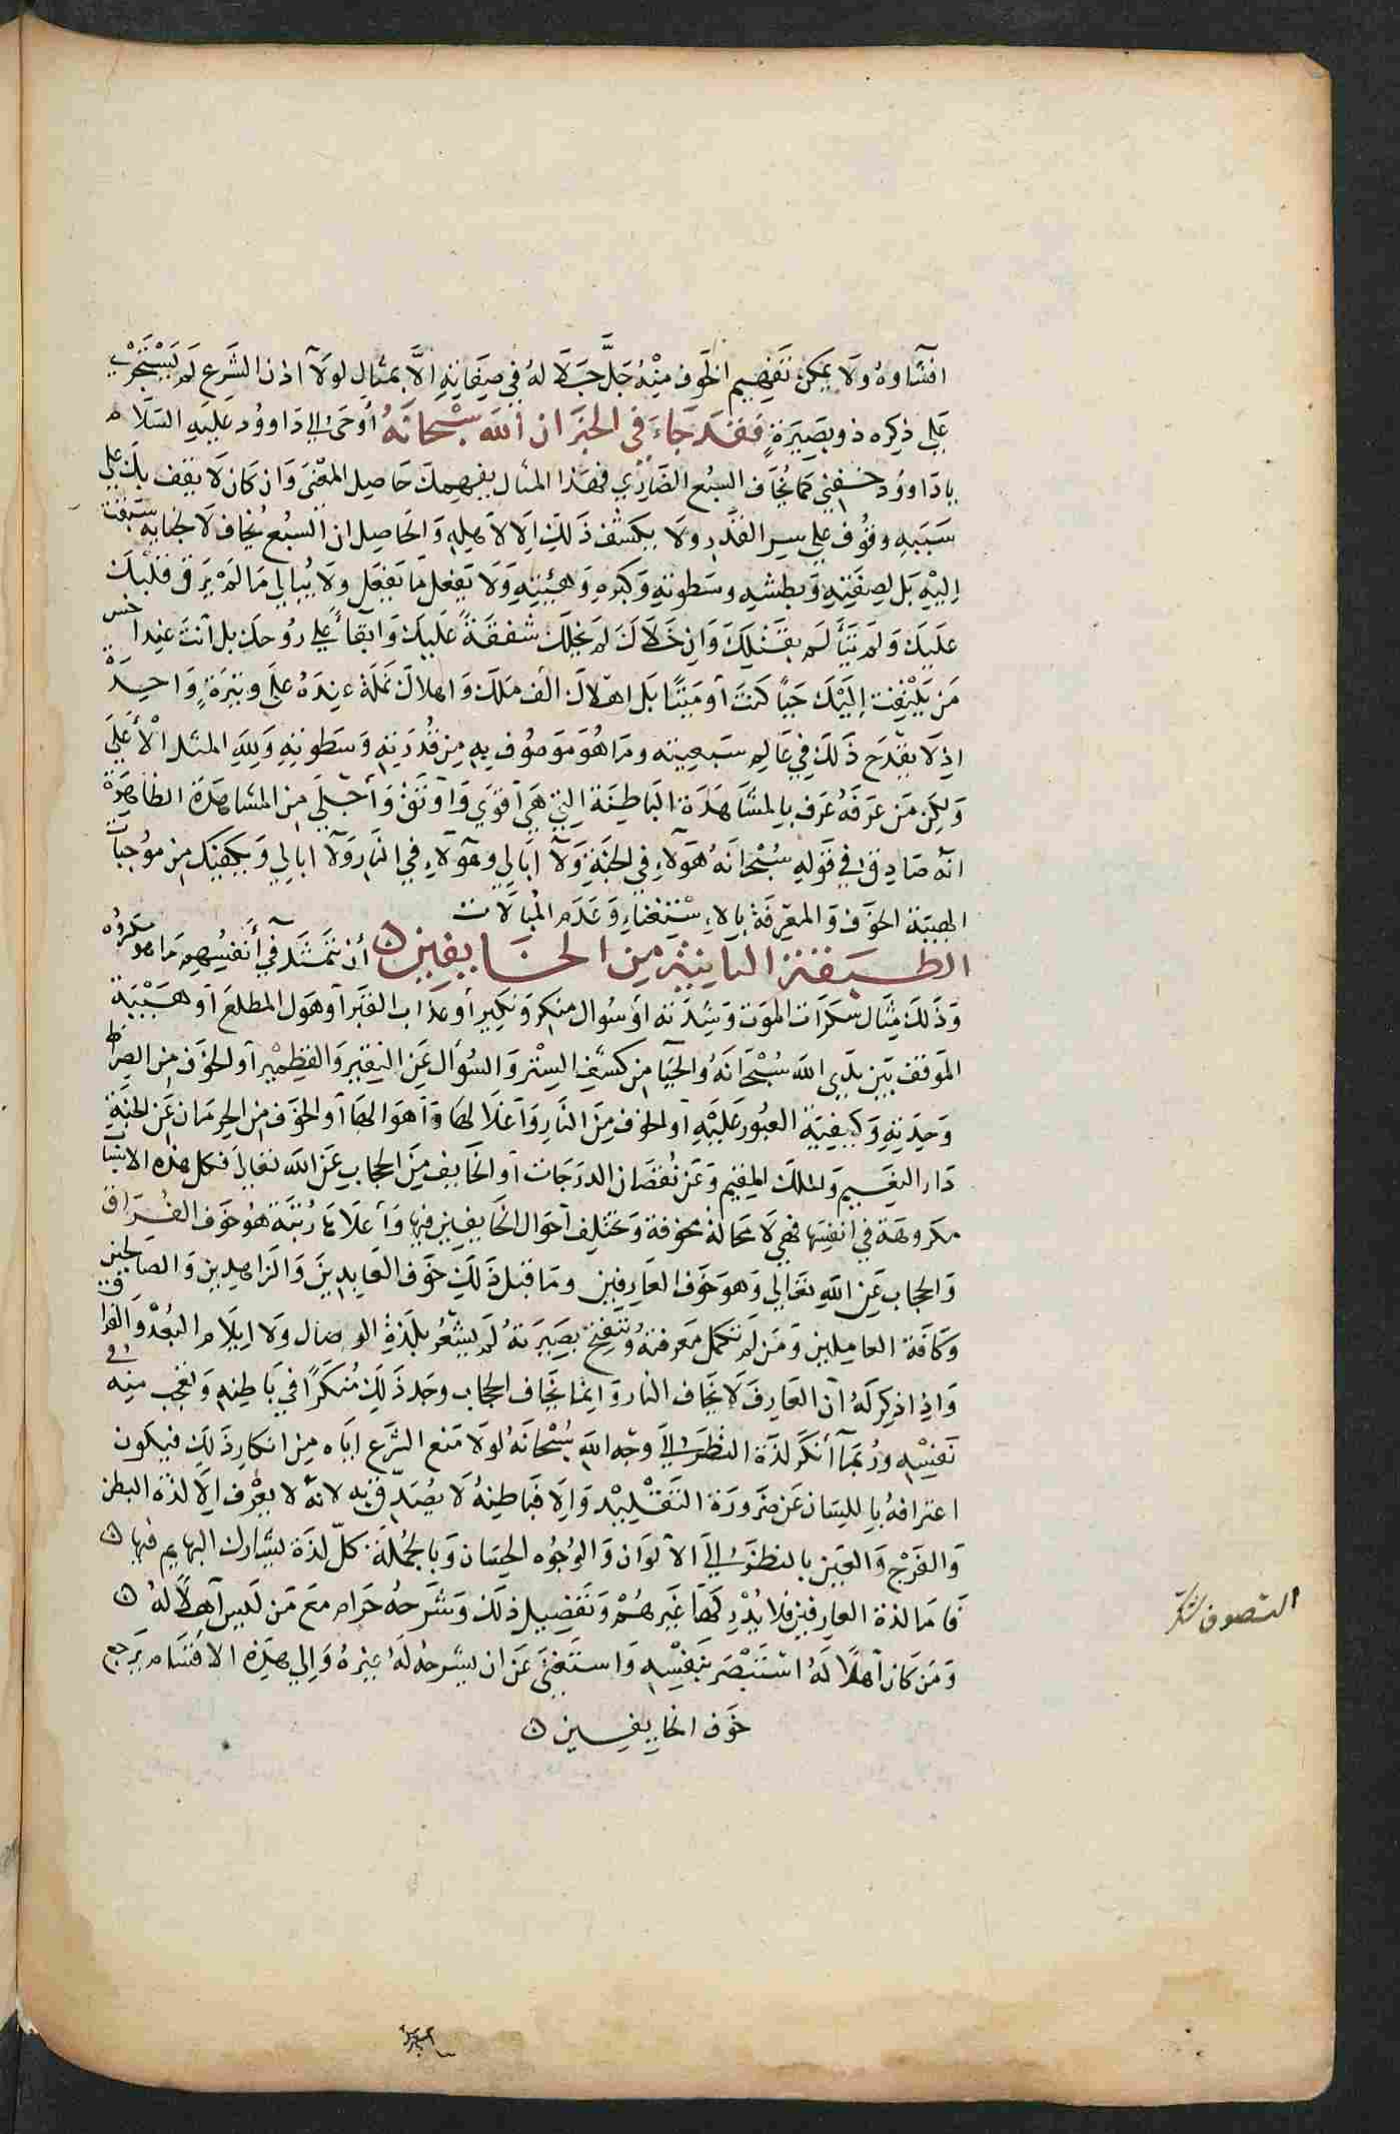 افشاوه ولا يمكن تفهيم الخوف منه جل جلاله في صفاته الا بمثال لولا اذن الشرع لم يستجرى
على ذكره ذو بصيرة فقد جاء في الخبر ان الله سبحانه أوحى الى داوود عليه السلام
يا داوود خفني كما يخاف السبع الضاري فهذا المثال يفهمك حاصل المعنى وان كان لا يقف بك على
سببه وقوف على سر القدر ولا يكشف ذلك الا لاهله والحاصل ان السبع يخاف لا لجناية سبقت
اليه بل لصفته وبطشه وسطوته وكبره وهيئته ولا تفعل ما تفعل ولا يبالي ما لم يرق قلبك
عليك ولم يتألم بقتلك وان خلاك لم يخلك شفقة عليك وابقاً على روحك بل أنت عنده اخس
من يلتفت اليك حياً كنت أو ميتا بل اهلاك الف ملك واهلاك نملة عنده على وتيرة واحدة
اذ لا يقدح ذلك في عالم سبعيته وما هو موصوف به من قدرته وسطوته ولله المثل الأعلى
ولكن من عرفه عرف بالمشاهدة الباطنة التي هي أقوى وأوثق وأجلى من المشاهدة الظاهرة
انه صادق في قوله سبحانه هولاء في الجنة ولا ابالي وهولاء في النار ولا ابالي ويكفيك من موجبات
الهيبة الخوف والمعرفة بالاستغناء وعدم المبالات
الطبقة الثانية من الخايفين ان تتمثل في أنفسهم ما هو مكروه
وذلك مثال سكرات الموت وشدته او سوال منكر ونكير أو عذاب القبر أو هول المطلع أو هيبة
الموقف بين يدي الله سبحانه والحيا من كشف الستر والسؤال عن النقير والقطمير او الخوف من الصراط
وحدته وكيفية العبور عليه او الخوف من النار وأغلالها وأهوالها أو الخوف من الحرمان عن الجنة
دار النعيم والملك المقيم وعن نقصان الدرجات أو الخايف من الحجاب عن الله تعالى فكل هذه الاشياء
مكروهة في انفسها فهي لا محالة مخوفة وتختلف أحوال الخايفين فيها وأعلاها رتبة هو خوف الفراق
والحجاب عن الله تعالى وهو خوف العارفين وما قبل ذلك خوف العابدين والزاهدين والصالحين
وكافة العاملين ومن لم تكمل معرفته وتنفتح بصيرته لم يشعر بلذة الوصال ولا ايلام البعد والفراق
واذا ذكر له أن العارف لا يخاف النار وانما يخاف الحجاب وجد ذلك منكرًا في باطنه وتعجب منه في
نفسه وربما أنكر لذة النظر الى وجه الله سبحانه لولا منع الشرع اياه من انكار ذلك فيكون
اعترافه باللسان عن ضرورة التقليد والا فباطنه لا يصدق به لانه لا يعرف الا لذة البطن
والفرج والعين بالنظر الى الألوان والوجوه الحسان وبالجملة كل لذة يشارك البهايم فيها
فاما لذة العارفين فلا يدركها غيرهم وتفصيل ذلك وشرحه حرام مع من ليس أهلاً له
ومن كان أهلا له استبصر بنفسه واستغنى عن ان يشرحه له غيره والى هذه الاقسام يرجع
خوف الخايفين
التصوف